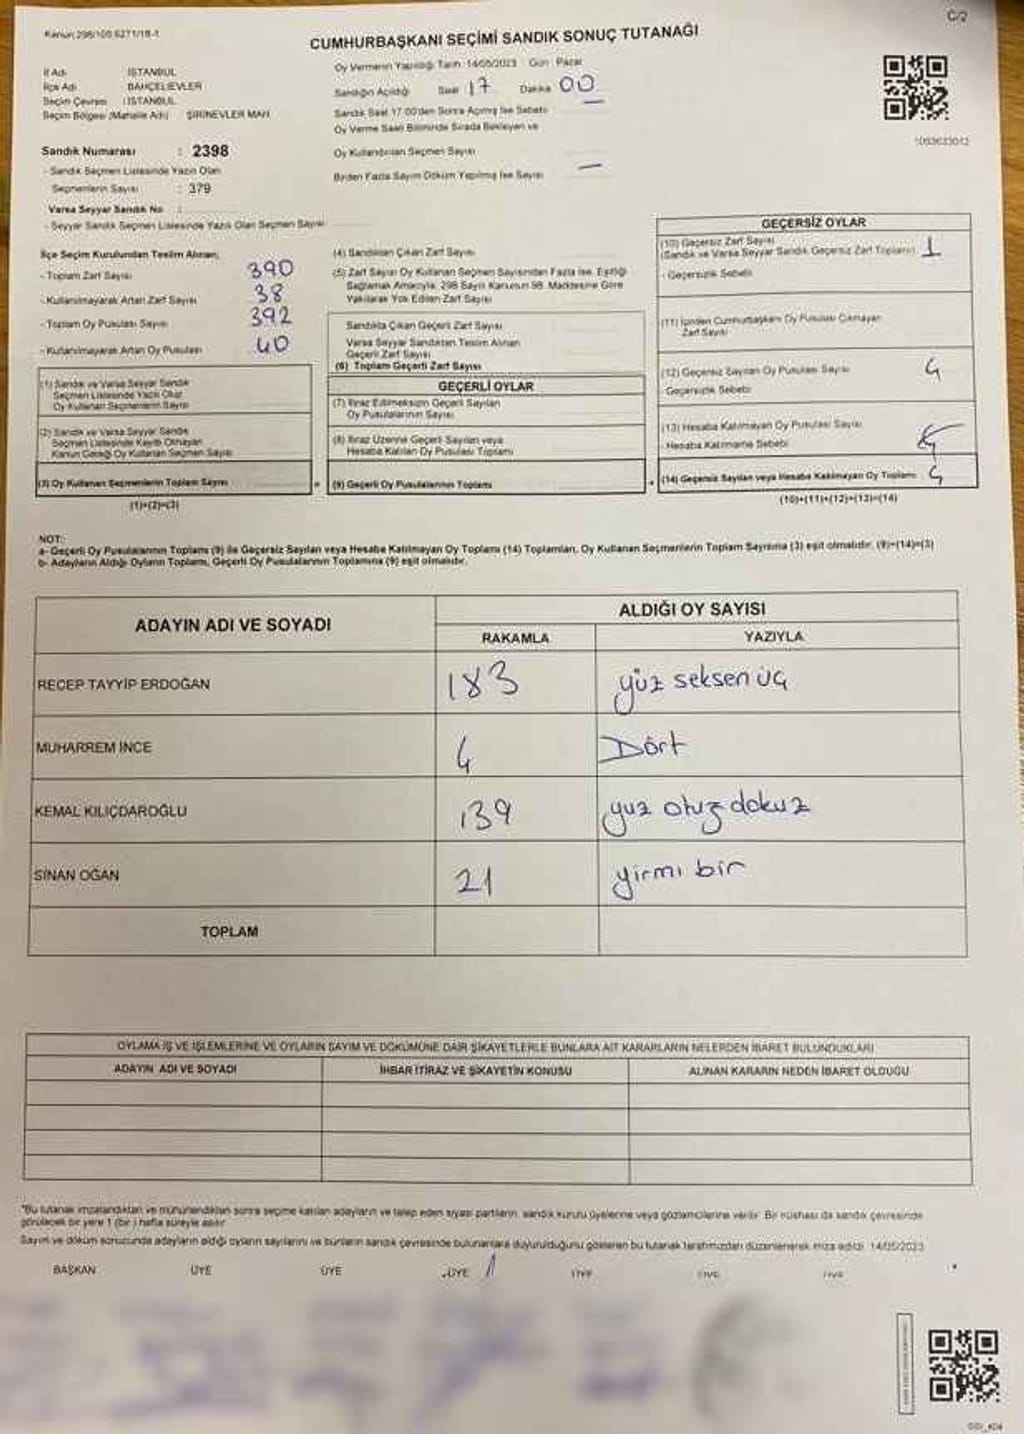 Kanun 298/108 6271/18-1
C/2
CUMHURBAŞKANI SEÇİMİ SANDIK SONUÇ TUTANAĞI
İl Adı : İSTANBUL
İlçe Adı : BAHÇELİEVLER
Seçim Çevresi : İSTANBUL
Seçim Bölgesi (Mahalle Adı) : ŞİRİNEVLER MAH.
Oy Vermenin Yapıldığı Tarih 14/05/2023 Gün : Pazar
Sandığın Açıldığı Saat 17 Dakika 00
Sandık Saat 17:00'den Sonra Açılmış İse Sebebi —
Oy Verme Saati Bitiminde Sırada Bekleyen ve
Oy Kullandırılan Seçmen Sayısı
Birden Fazla Sayım Döküm Yapılmış İse Sayısı —
Sandık Numarası : 2398
- Sandık Seçmen Listesinde Yazılı Olan
Seçmenlerin Sayısı : 379
Varsa Seyyar Sandık No :
- Seyyar Sandık Seçmen Listesinde Yazılı Olan Seçmen Sayısı
İlçe Seçim Kurulundan Teslim Alınan;
- Toplam Zarf Sayısı 390
- Kullanılmayarak Artan Zarf Sayısı 38
- Toplam Oy Pusulası Sayısı 392
- Kullanılmayarak Artan Oy Pusulası 40
(1) Sandık ve Varsa Seyyar Sandık
Seçmen Listesinde Yazılı Olup
Oy Kullanan Seçmenlerin Sayısı
(2) Sandık ve Varsa Seyyar Sandık
Seçmen Listesinde Kayıtlı Olmayan
Kanun Gereği Oy Kullanan Seçmen Sayısı
(3) Oy Kullanan Seçmenlerin Toplam Sayısı
(1)+(2)=(3)
(4) Sandıktan Çıkan Zarf Sayısı
(5) Zarf Sayısı Oy Kullanan Seçmen Sayısından Fazla İse, Eşitliği
Sağlamak Amacıyla, 298 Sayılı Kanunun 98. Maddesine Göre
Yakılarak Yok Edilen Zarf Sayısı
Sandıkta Çıkan Geçerli Zarf Sayısı
Varsa Seyyar Sandıktan Teslim Alınan
Geçerli Zarf Sayısı
(6) Toplam Geçerli Zarf Sayısı
GEÇERLİ OYLAR
(7) İtiraz Edilmeksizin Geçerli Sayılan
Oy Pusulalarının Sayısı
(8) İtiraz Üzerine Geçerli Sayılan veya
Hesaba Katılan Oy Pusulası Toplamı
(9) Geçerli Oy Pusulalarının Toplamı
GEÇERSİZ OYLAR
(10) Geçersiz Zarf Sayısı
(Sandık ve Varsa Seyyar Sandık Geçersiz Zarf Toplamı) 1
- Geçersizlik Sebebi
(11) İçinden Cumhurbaşkanı Oy Pusulası Çıkmayan
Zarf Sayısı
(12) Geçersiz Sayılan Oy Pusulası Sayısı 4
Geçersizlik Sebebi
(13) Hesaba Katılmayan Oy Pusulası Sayısı
- Hesaba Katılmama Sebebi
(14) Geçersiz Sayılan veya Hesaba Katılmayan Oy Toplamı
(10)+(11)+(12)+(13)=(14)
NOT:
a- Geçerli Oy Pusulalarının Toplamı (9) ile Geçersiz Sayılan veya Hesaba Katılmayan Oy Toplamı (14) Toplamları, Oy Kullanan Seçmenlerin Toplam Sayısına (3) eşit olmalıdır. (9)+(14)=(3)
b- Adayların Aldığı Oyların Toplamı, Geçerli Oy Pusulalarının Toplamına (9) eşit olmalıdır.
ADAYIN ADI VE SOYADI
ALDIĞI OY SAYISI
RAKAMLA YAZIYLA
RECEP TAYYİP ERDOĞAN 183 yüz seksen üç
MUHARREM İNCE 4 Dört
KEMAL KILIÇDAROĞLU 139 yuz otuz dokuz
SİNAN OĞAN 21 yirmi bir
TOPLAM
OYLAMA İŞ VE İŞLEMLERİNE VE OYLARIN SAYIM VE DÖKÜMÜNE DAİR ŞİKAYETLERLE BUNLARA AİT KARARLARIN NELERDEN İBARET BULUNDUKLARI
ADAYIN ADI VE SOYADI İHBAR İTİRAZ VE ŞİKAYETİN KONUSU ALINAN KARARIN NEDEN İBARET OLDUĞU
*Bu tutanak imzalandıktan ve mühürlendikten sonra seçime katılan adayların ve talep eden siyasi partilerin, sandık kurulu üyelerine veya gözlemcilerine verilir. Bir nüshası da sandık çevresinde
görülecek bir yere 1 (bir) hafta süreyle asılır.
Sayım ve döküm sonucunda adayların aldığı oyların sayılarını ve bunların sandık çevresinde bulunanlara duyurulduğunu gösteren bu tutanak tarafımızdan düzenlenerek imza edildi. 14/05/2023
BAŞKAN ÜYE ÜYE ÜYE